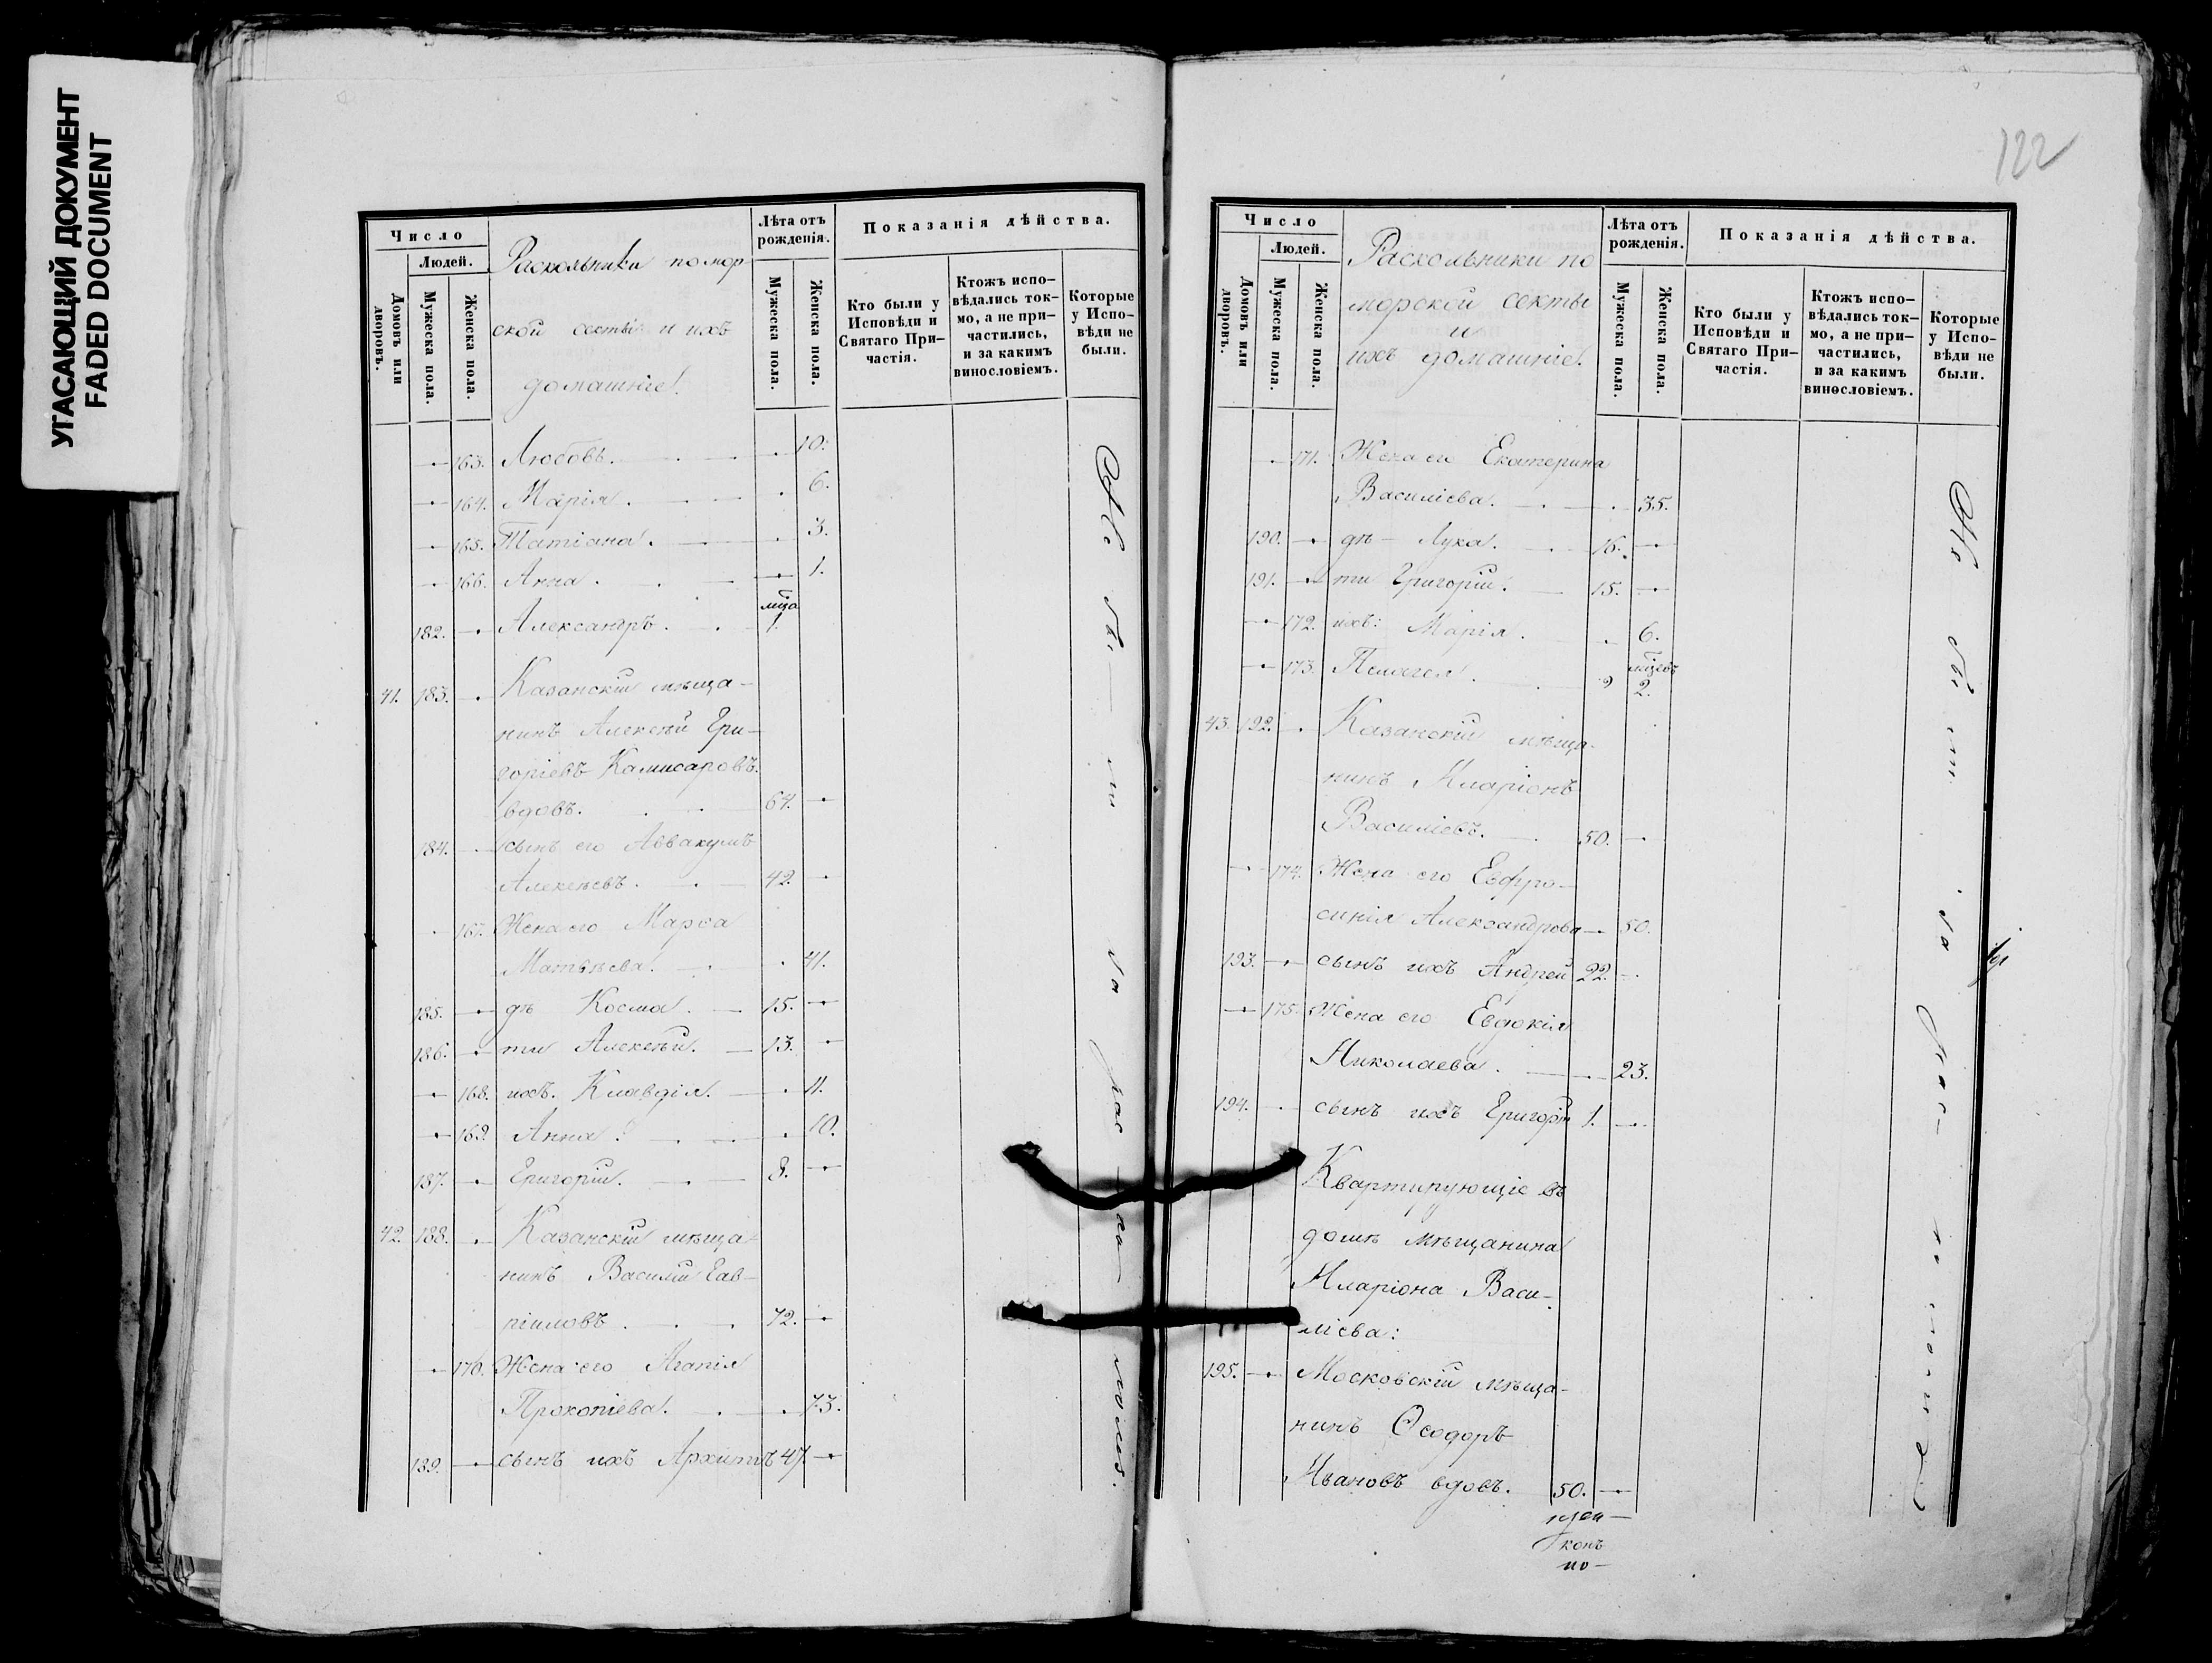 УГАСАЮЩИЙ ДОКУМЕНТ
FADED DOCUMENT
Число
Людей.
Домовъ или дворовъ.
Мужеска пола.
Женска пола.
Раскольники помор
ской секты и ихъ
домашніе.
Лѣта отъ рожденія.
Мужеска пола.
Женска пола.
Показанія дѣйства.
Кто были у Исповѣди и Святаго Причастія.
Ктожъ исповѣдались токмо, а не причастились, и за какимъ винословіемъ.
Которые у Исповѣди не были.
163. Любовь. 10.
164. Марія. 6.
165. Татіана. 3.
166. Анна. 1.
мца
182. Александръ. 1.
41. 183. Казанскій мѣща-
нинъ Алексѣй Гри-
горіевъ Камисаровъ.
вдовъ. 64.
184. сынъ его Аввакумъ
Алексѣевъ. 42.
167. Жена его Марѳа
Матвѣева. 41.
185. дѣ Косма. 15.
186. ти Алексѣй. 13.
168. ихъ. Клавдія. 11.
169. Анна. 10.
187. Григорій. 8.
42. 188. Казанскій мѣща-
нинъ Василій Сав-
72.
170. Жена его Агапія
Прокопіева. 73.
189. сынъ ихъ Архипъ 47.
122
Число
Людей.
Домовъ или дворовъ.
Мужеска пола.
Женска пола.
Раскольники по
морской секты
и
ихъ домашніе.
Лѣта отъ рожденія.
Мужеска пола.
Женска пола.
Показанія дѣйства.
Кто были у Исповѣди и Святаго Причастія.
Ктожъ исповѣдались токмо, а не причастились, и за какимъ винословіемъ.
Которые у Исповѣди не были.
171. Жена его Екатерина
Василіева. 35.
190. дѣ- Лука. 16.
191. ти Григорій. 15.
172. ихъ: Марія. 6.
мцевъ
173. Пелагея. 2.
43. 192. Казанскій мѣща-
нинъ Иларіонъ
Василіевъ. 50.
174. Жена его Евфро-
синія Александрова 50.
193. сынъ ихъ Андрей 22.
175. Жена его Евдокія
Николаева. 23.
194. сынъ ихъ Григорій 1.
Квартирующіе въ
домѣ мѣщанина
Иларіона Васи-
ліева:
195. Московскій мѣща-
нинъ Ѳеодоръ
Ивановъ вдовъ. 50.
по-